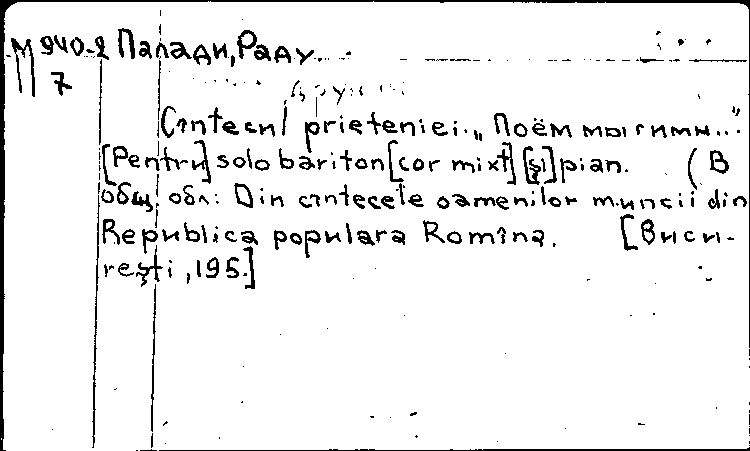 М 940-2 Палади, Раду.
7
Cîntecul prieteniei. „Поём мы гимн..."
[Pentru] solo bariton [cor mixt] [și] pian. (В
общ. обл: Din cîntecele oamenilor muncii din
Republica populara Romîna. [Bucu-
rești, 195.]